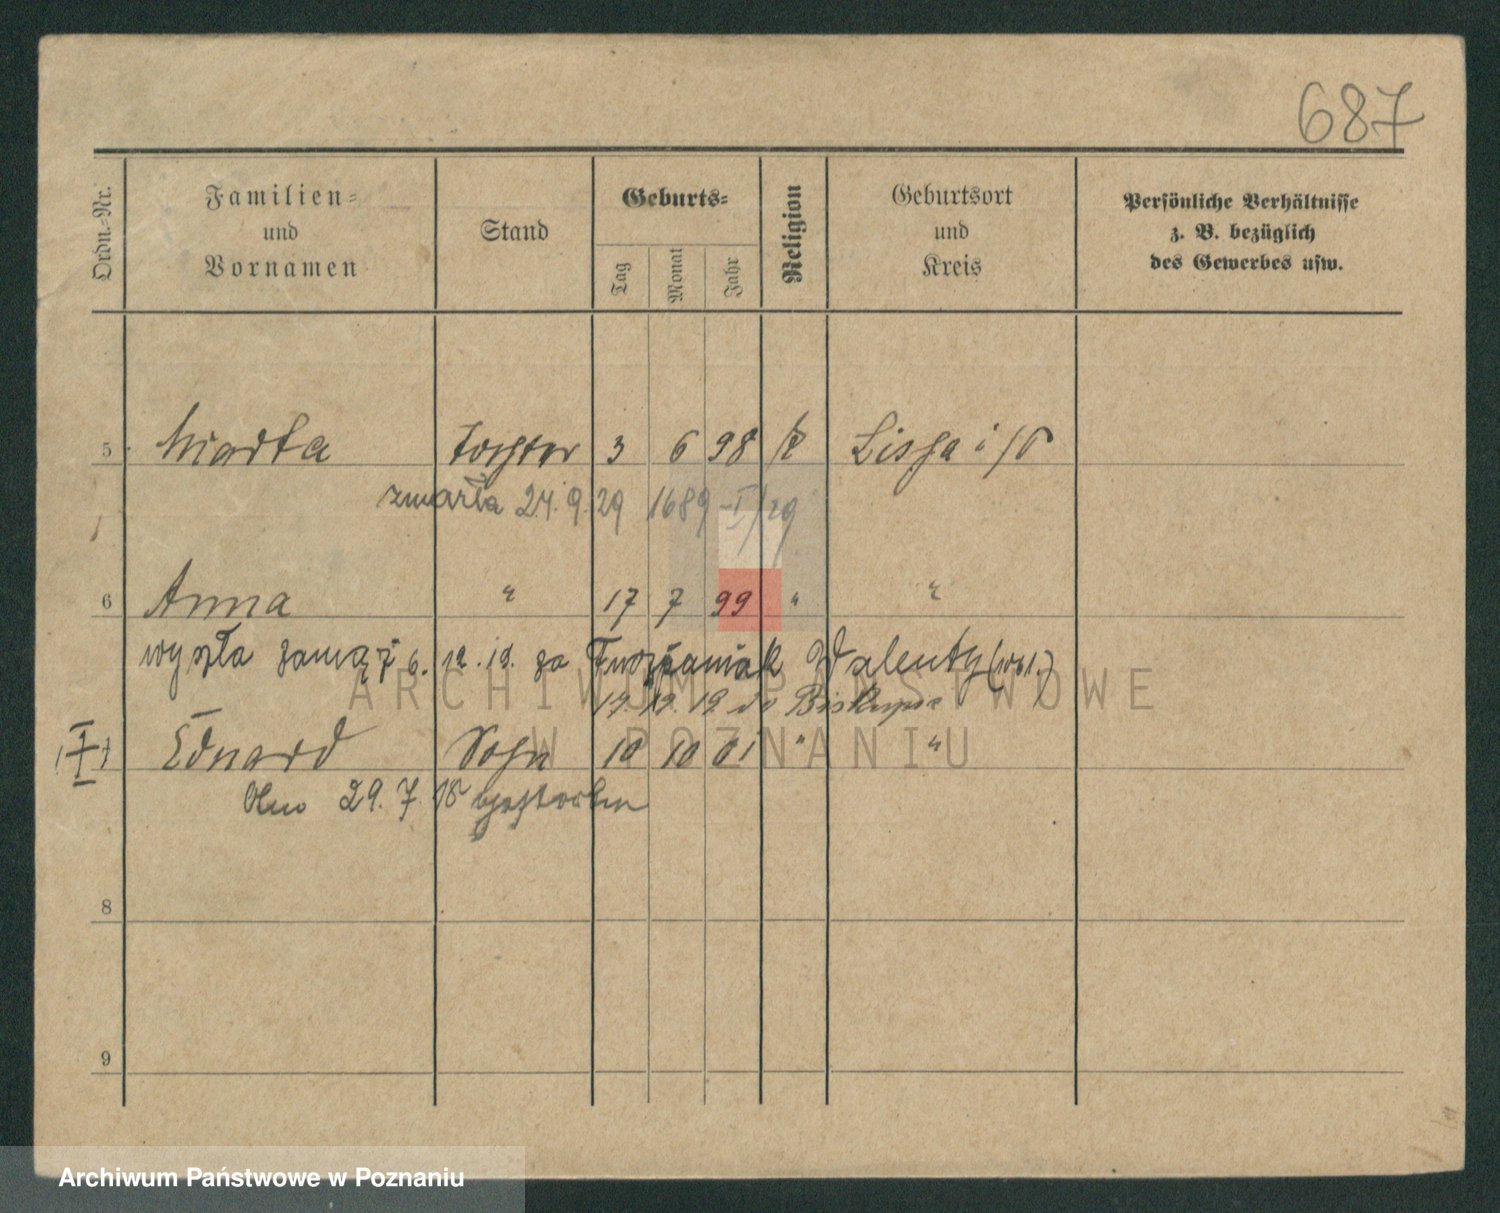 687
Ordn.-Nr.
Familien-
und
Vornamen
Stand
Geburts-
Tag
Monat
Jahr
Religion
Geburtsort
und
Kreis
Persönliche Verhältnisse
z. B. bezüglich
des Gewerbes usw.
5 Marta Tochter 3 6 98 K Lissa i/P
zmarła 24.9.29 1689 I/29
6 Anna " 17 7 99 " "
wyszła zamąż 6. 12. 19. za Woźniak Walenty
19. 12. 19 do Biskupic
Eduard Sohn 10 10 01 " "
29. 7. 18 gestorben
8
9
ARCHIWUM PAŃSTWOWE
W POZNANIU
Archiwum Państwowe w Poznaniu